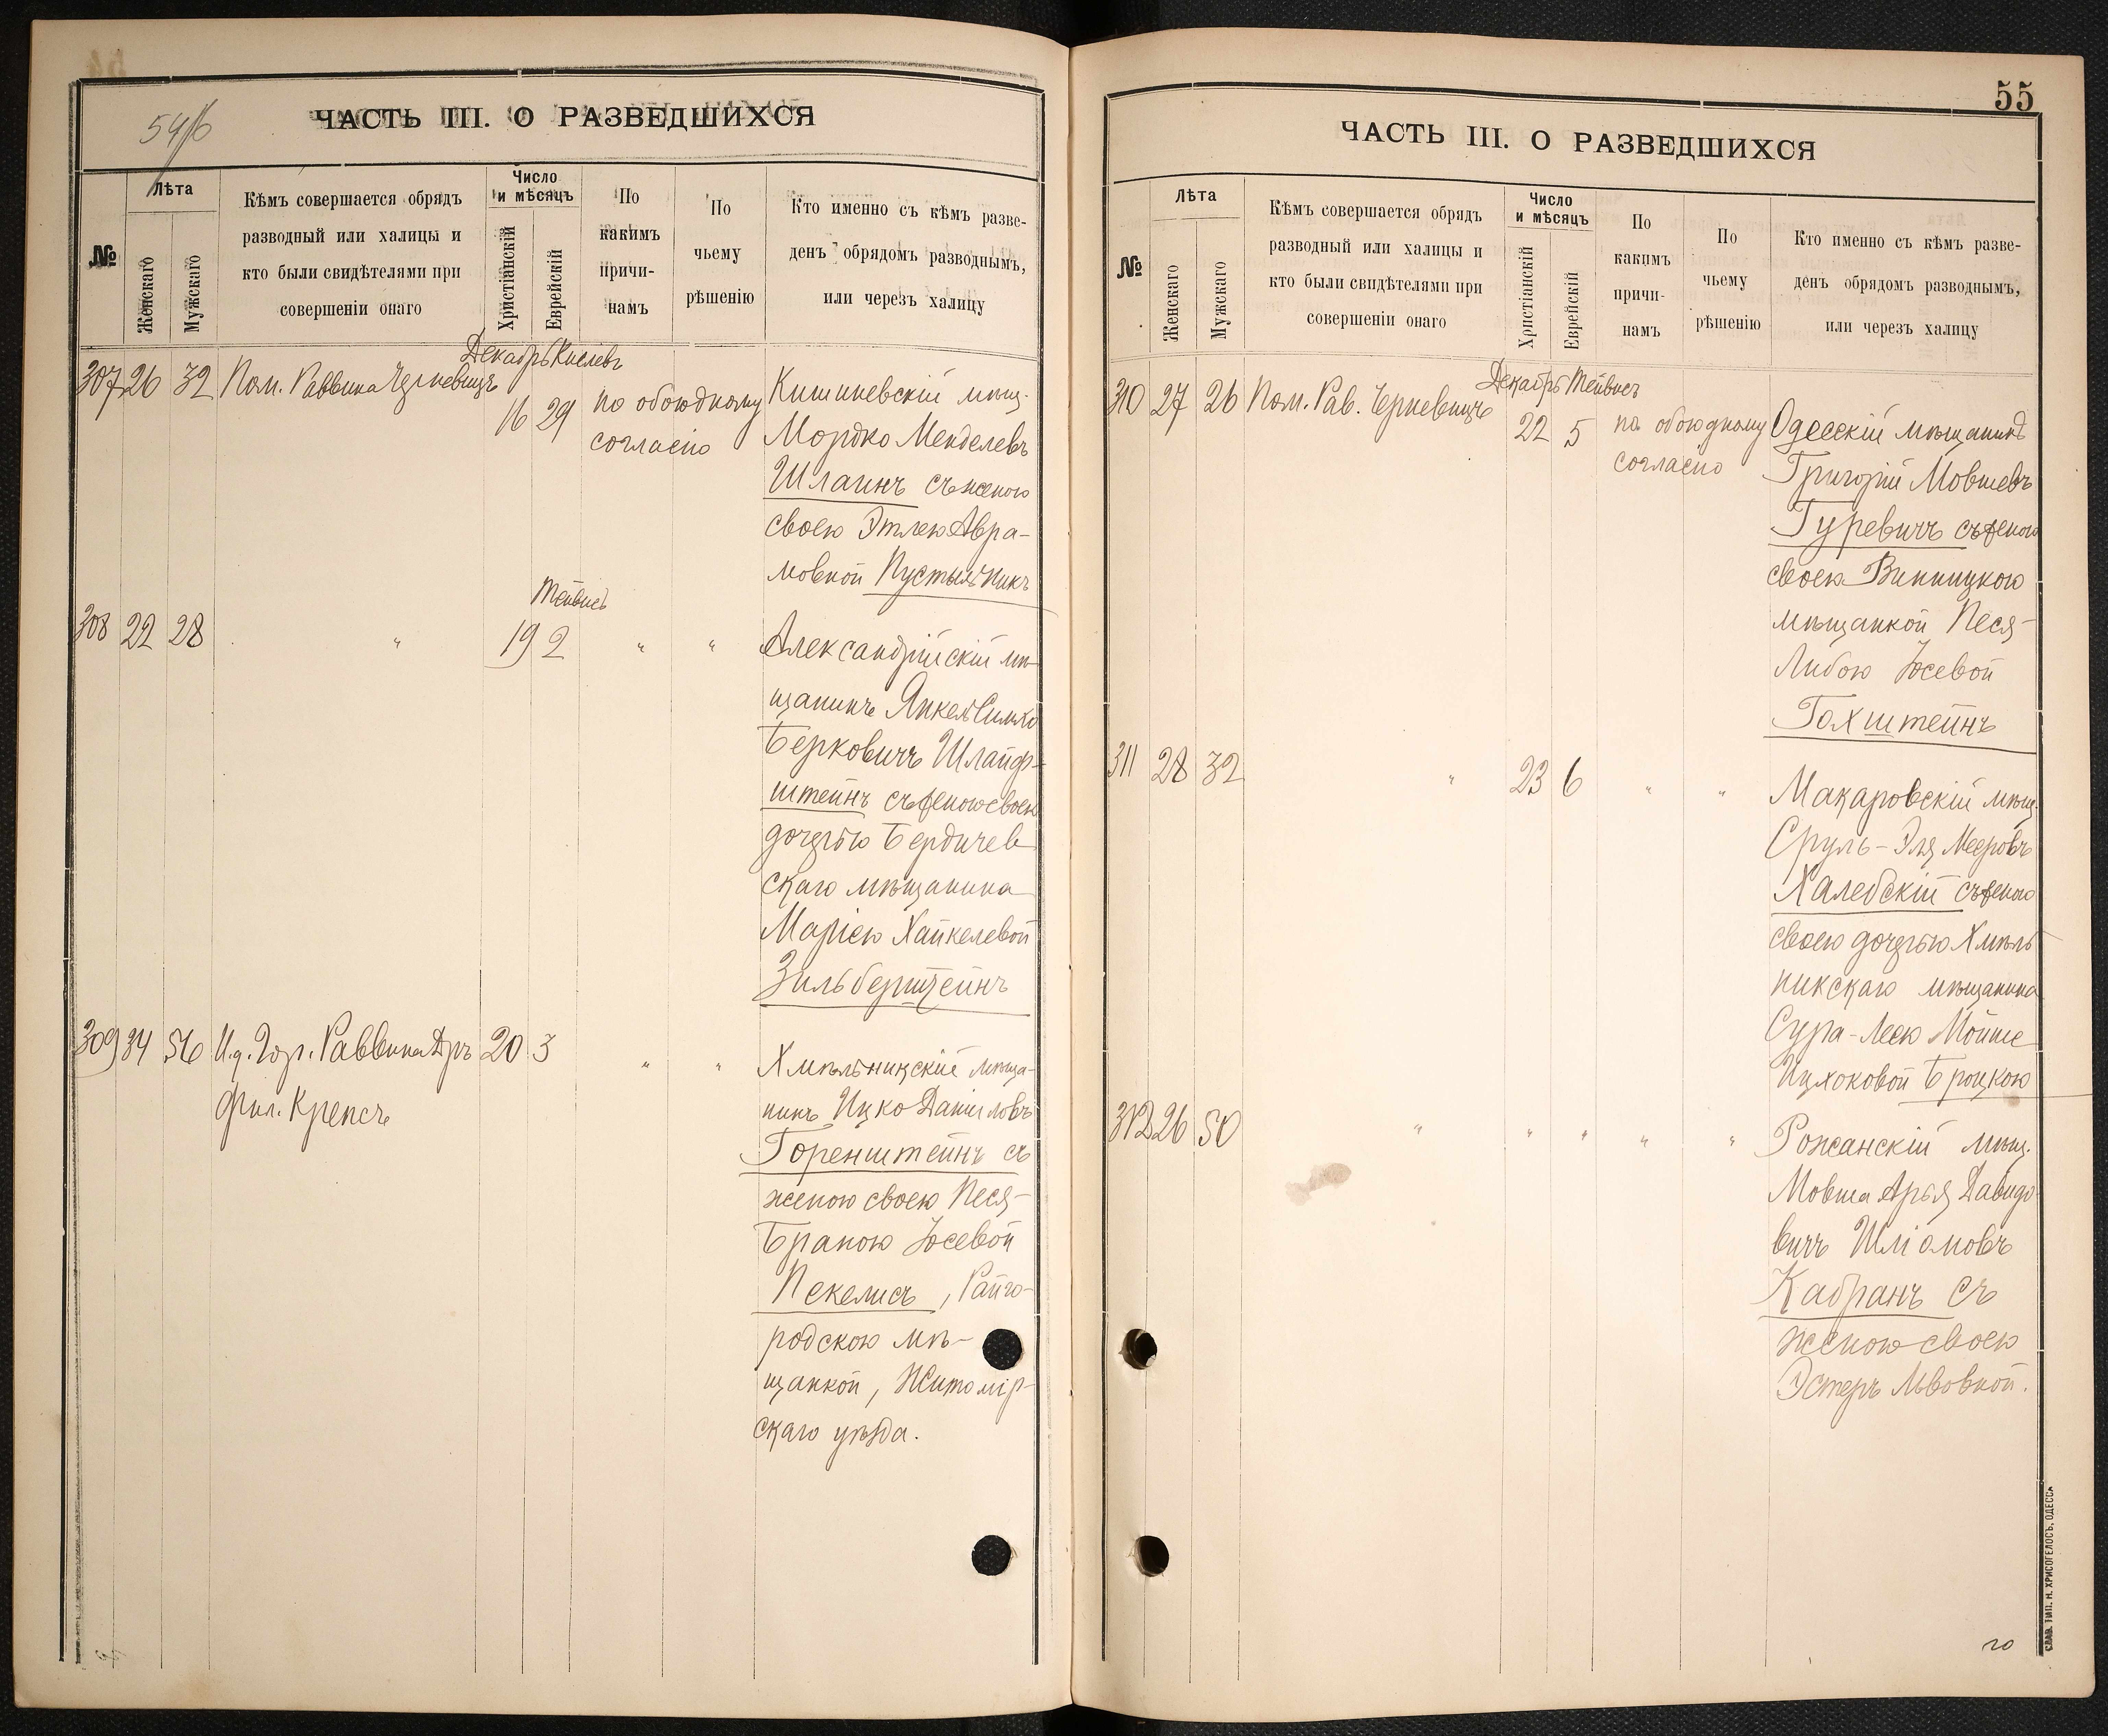 54/б
ЧАСТЬ III. О РАЗВЕДШИХСЯ
№
Лѣта
Женскаго
Мужскаго
Кѣмъ совершается обрядъ
разводный или халицы и
кто были свидѣтелями при
совершеніи онаго
Число
и мѣсяцъ
Христіанскій
Еврейскій
По
какимъ
причи-
намъ
По
чьему
рѣшенію
Кто именно съ кѣмъ разве-
денъ обрядомъ разводнымъ,
или черезъ халицу
Декабрь Кислевъ
307 26 32 Пом. Раввина Черкевицъ 16 29 по обоюдному Кишиневскій мѣщ.
согласію Мордко Менделевъ
Шлаинъ съ женою
своею Этлею Авра-
мовной Пустыльникъ
Тейвисъ
308 22 28 " 19 2 " " Александрійскій мѣ-
щанинъ Янкель Симхо
Берковичъ Шлайф-
штейнъ съ женою своею
дочерью Бердичев
скаго мѣщанина
Маріею Хайкелевой
Зильберштейнъ
309 34 56 И.д. Гор. Раввина Дръ 20 3 " " Хмѣльникскій мѣща-
Фил. Крепсъ нинъ Ицко Даниловъ
Горенштейнъ съ
женою своею Песя-
Браною Іосевой
Пекелисъ, Райго-
родскою мѣ-
щанкой, Житомір-
скаго уѣзда.
55
ЧАСТЬ III. О РАЗВЕДШИХСЯ
№
Лѣта
Женскаго
Мужскаго
Кѣмъ совершается обрядъ
разводный или халицы и
кто были свидѣтелями при
совершеніи онаго
Число
и мѣсяцъ
Христіанскій
Еврейскій
По
какимъ
причи-
намъ
По
чьему
рѣшенію
Кто именно съ кѣмъ разве-
денъ обрядомъ разводнымъ,
или черезъ халицу
Декабрь Тейвисъ
310 27 26 Пом. Рав. Черкевицъ 22 5 по обоюдному Одесскій мѣщанинъ
согласію Григорій Мовшевъ
Гуревичъ съ женою
своею Винницкою
мѣщанкой Песя-
Либою Іосевой
Гохштейнъ
311 28 32 " 23 6 " " Макаровскій мѣщ.
Сруль-Эля Мееровъ
Халебскій съ женою
своею дочерью Хмѣль
никскаго мѣщанина
Сура-Леею Мойше
Ицхоковой Броцкою
312 26 50 " " " " " Рожанскій мѣщ.
Мовша Арья Давидо
вичъ Шліомовъ
Кабранъ съ
женою своею
Эстеръ Львовной.
СЛАВ. ТИП. Н. ХРИСОГЕЛОСЪ, ОДЕССА